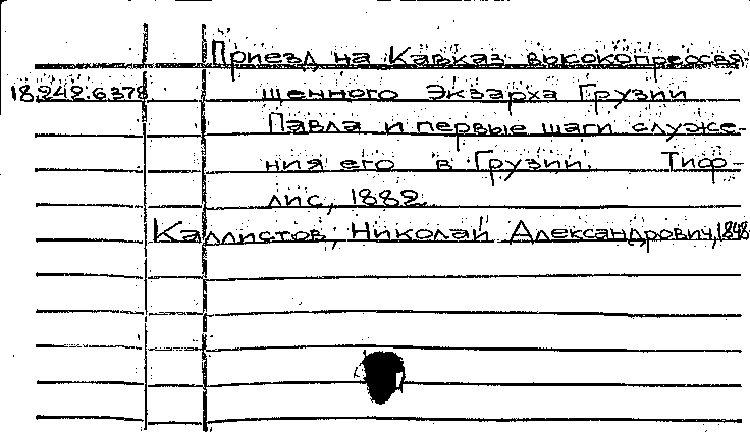 Приезд на Кавказ высокопреосвя-
18.242.6.378
щенного Экзарха Грузии
Павла и первые шаги служе-
ния его в Грузии. Тиф-
лис, 1882
Каллистов, Николай Александрович, 1848